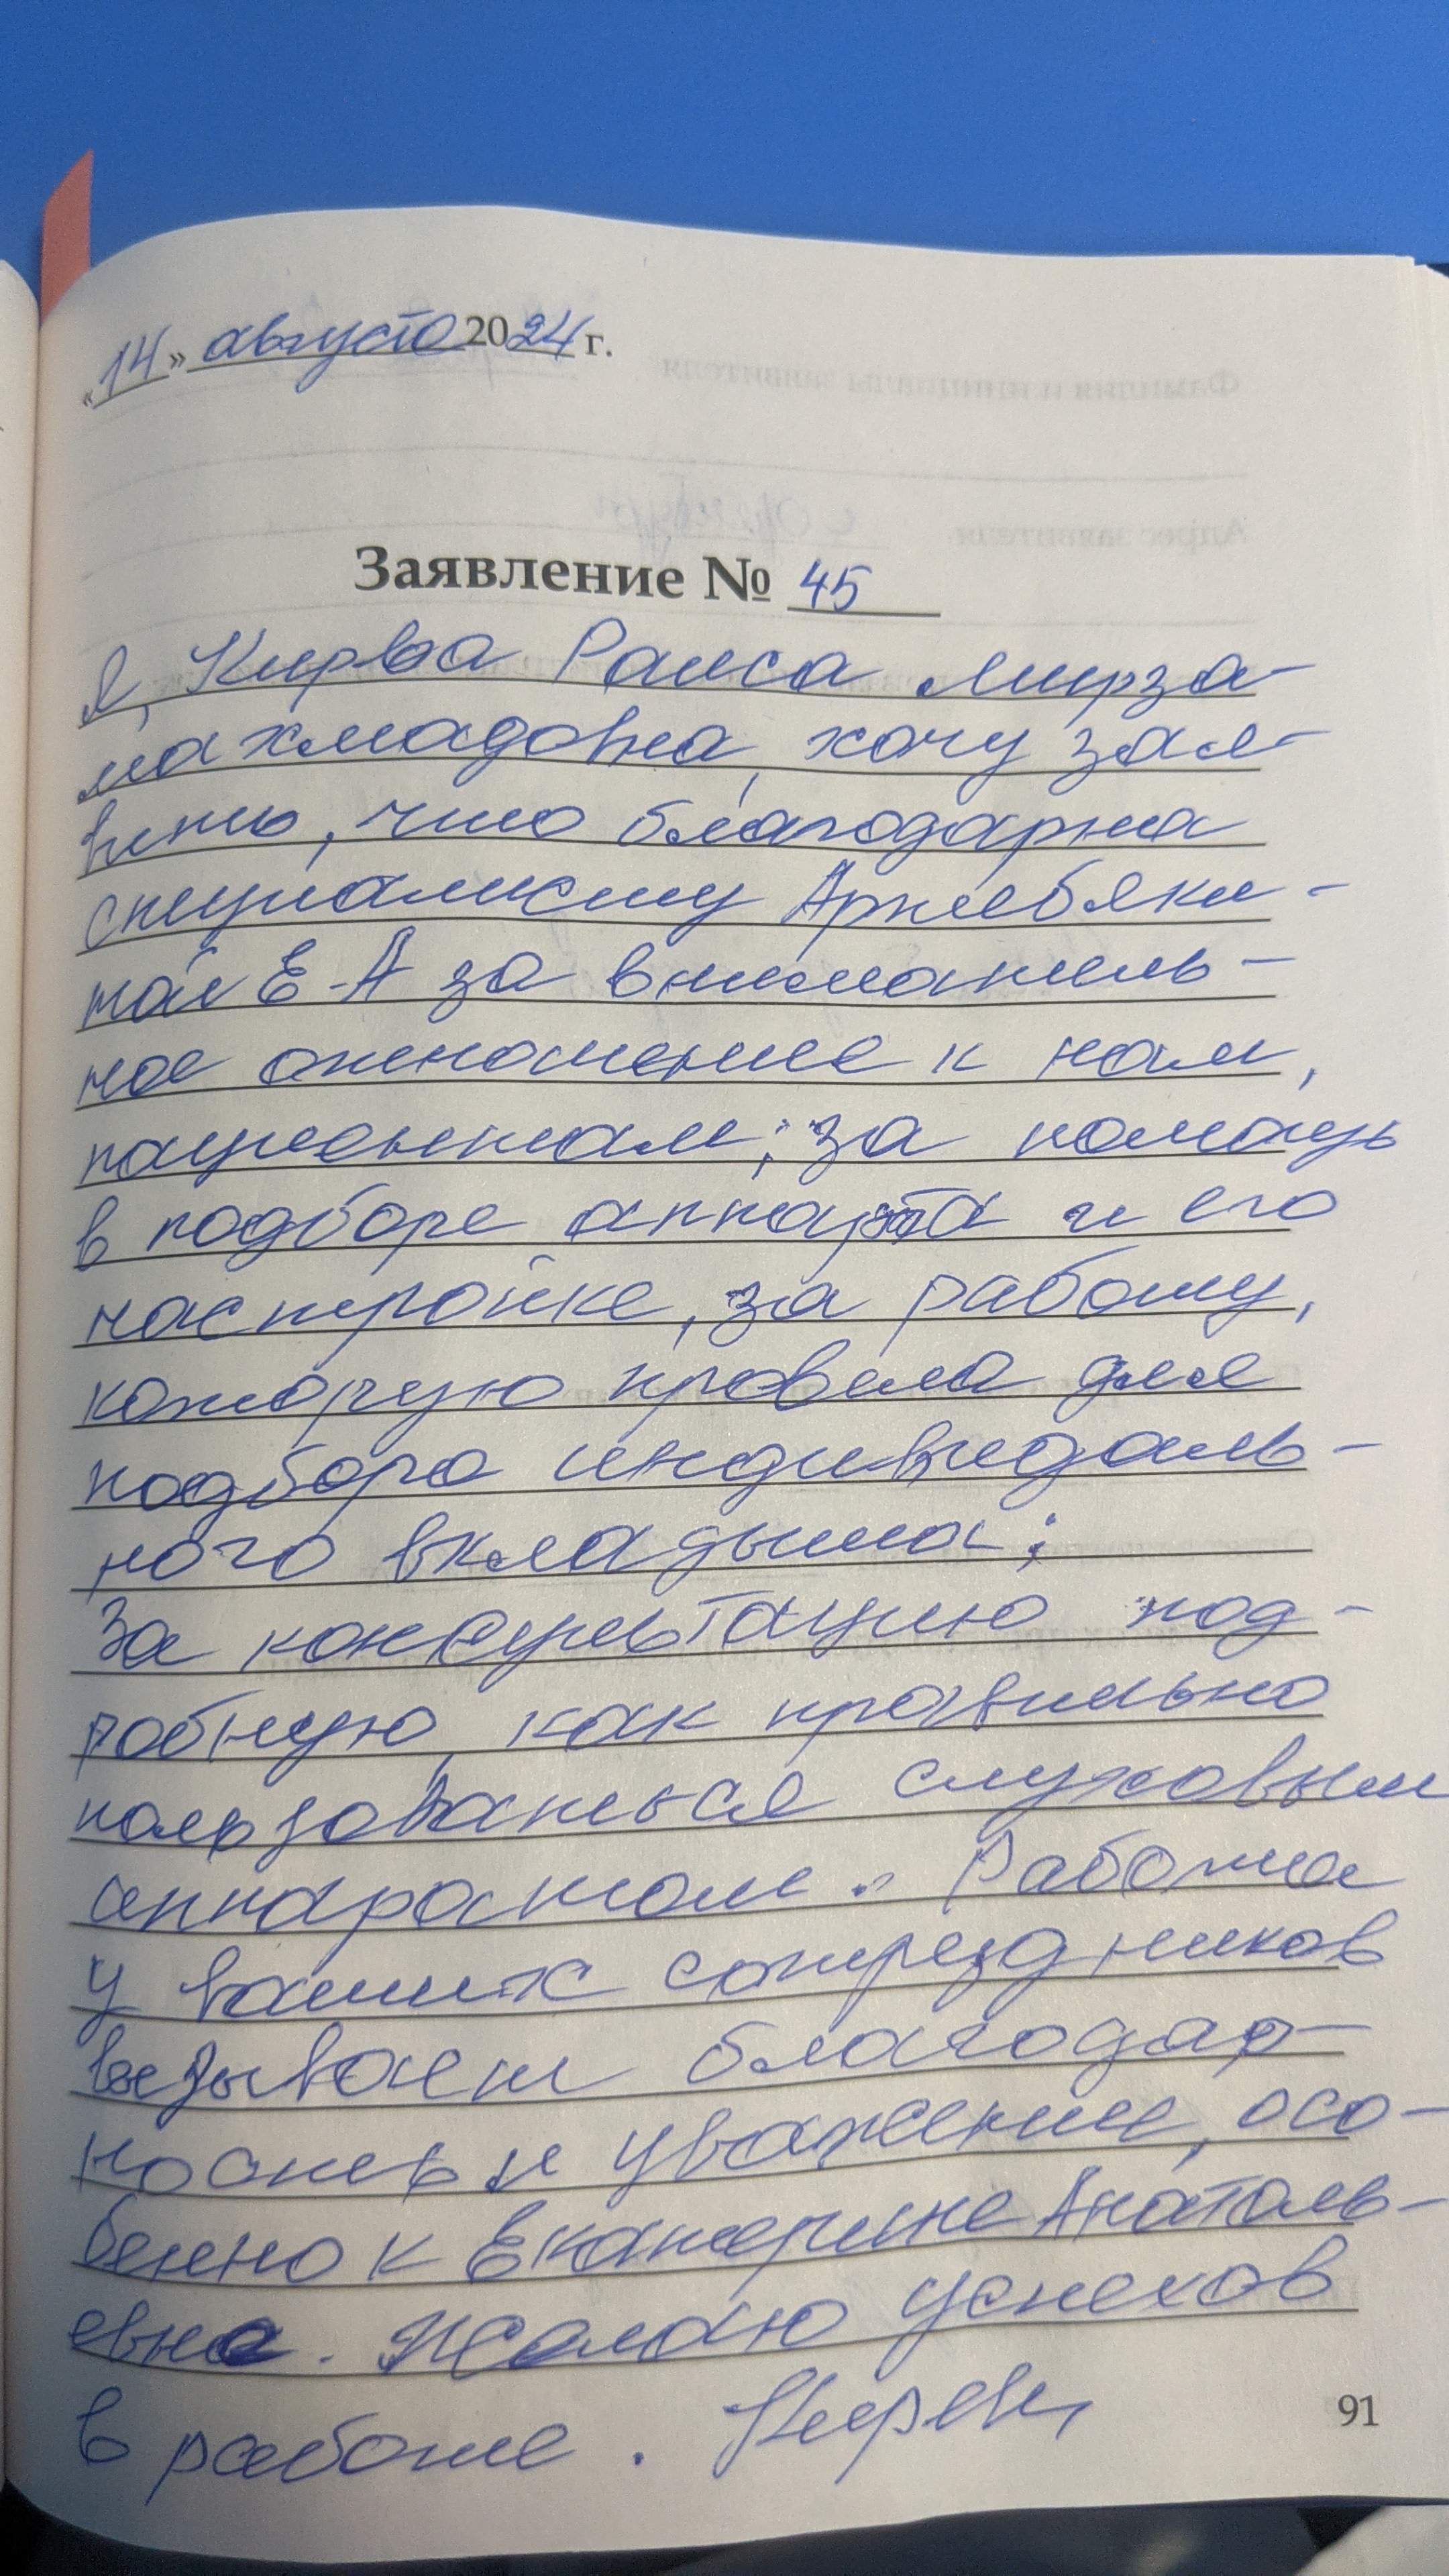 «14» августа 2024 г.
Заявление № 45
Я, Кирва Раиса Мирза-
махмадовна, хочу зая-
вить, что благодарна
специалисту Аржебяки-
ной Е-А за вниматель-
ное отношение к нам,
пациентам; за помощь
в подборе аппарта и его
настройке, за работу,
которую провела для
подбора индивидаль-
ного вкладыша;
За консультацию под-
робную, как правильно
пользоваться слуховым
аппаратом. Работа
у ваших сотрездников
вызывает благодар-
ность и уважение, осо-
бенно к Екатерине Анатоль-
евне. Желаю успехов
в работе.
91